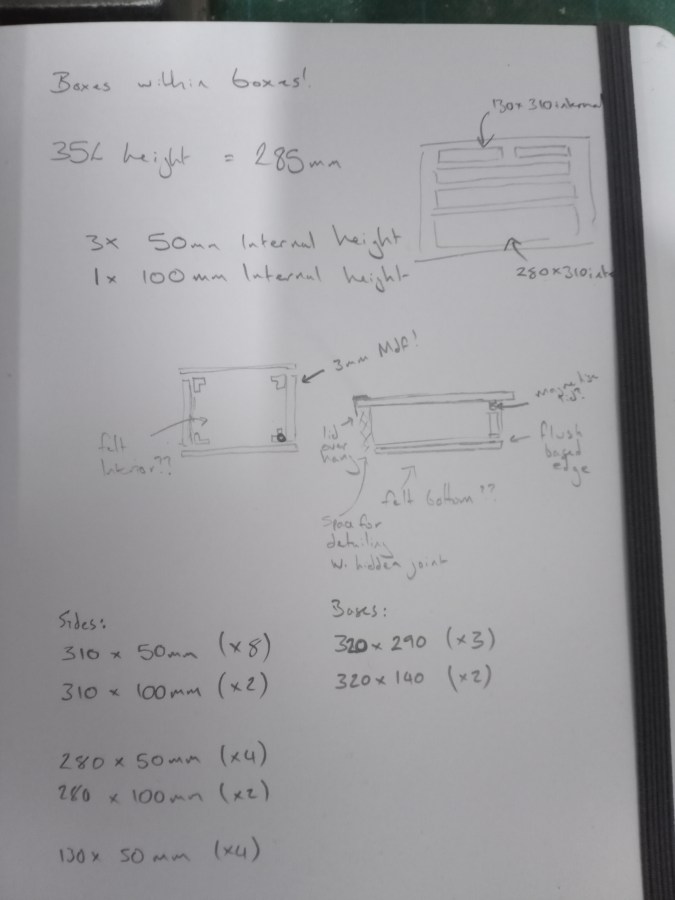 Boxes within boxes!
130 x 310 internal
35L height = 285mm
3x 50mm Internal height
1x 100mm Internal height
280x310 inte
3mm MDF!
felt
Interior??
lid
over
hang
flush
based
edge
felt bottom??
Space for
detailing
w. hidden joint
Sides:
310 x 50mm (x8)
310 x 100mm (x2)
280 x 50mm (x4)
280 x 100mm (x2)
130 x 50mm (x4)
Bases:
320 x 290 (x3)
320 x 140 (x2)